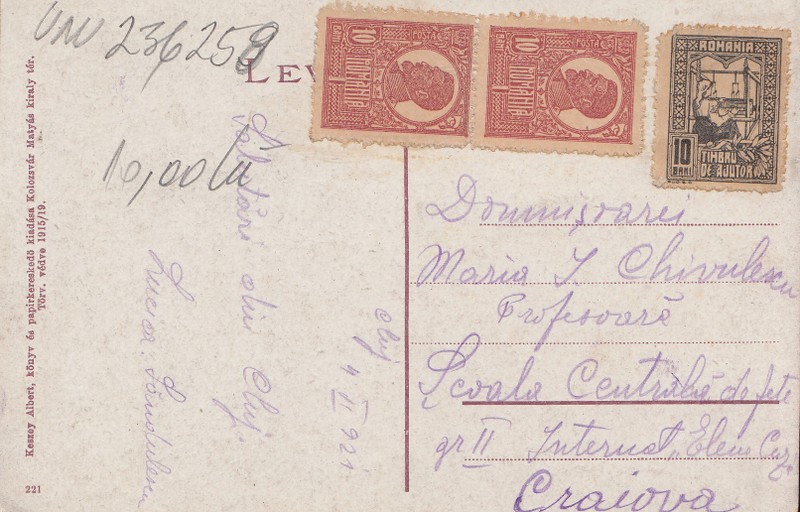 UNV 236259
LEV
10,00 lei
Salutări din Cluj
Lucica
Cluj
4 II 921
10
BANI
POSTA
ROMANIA
10
BANI
POSTA
ROMANIA
ROMANIA
10
BANI
TIMBRU
DE AJUTOR
Domnișoarei
Maria I. Chivulescu
Profesoară
Școala Centrală de fete
gr II Internat „Elena Cuza
Craiova
Keszey Albert, könyv és papirkereskedő kiadása Kolozsvár Matyás kiraly tér.
Törv. védve 1915/19.
221